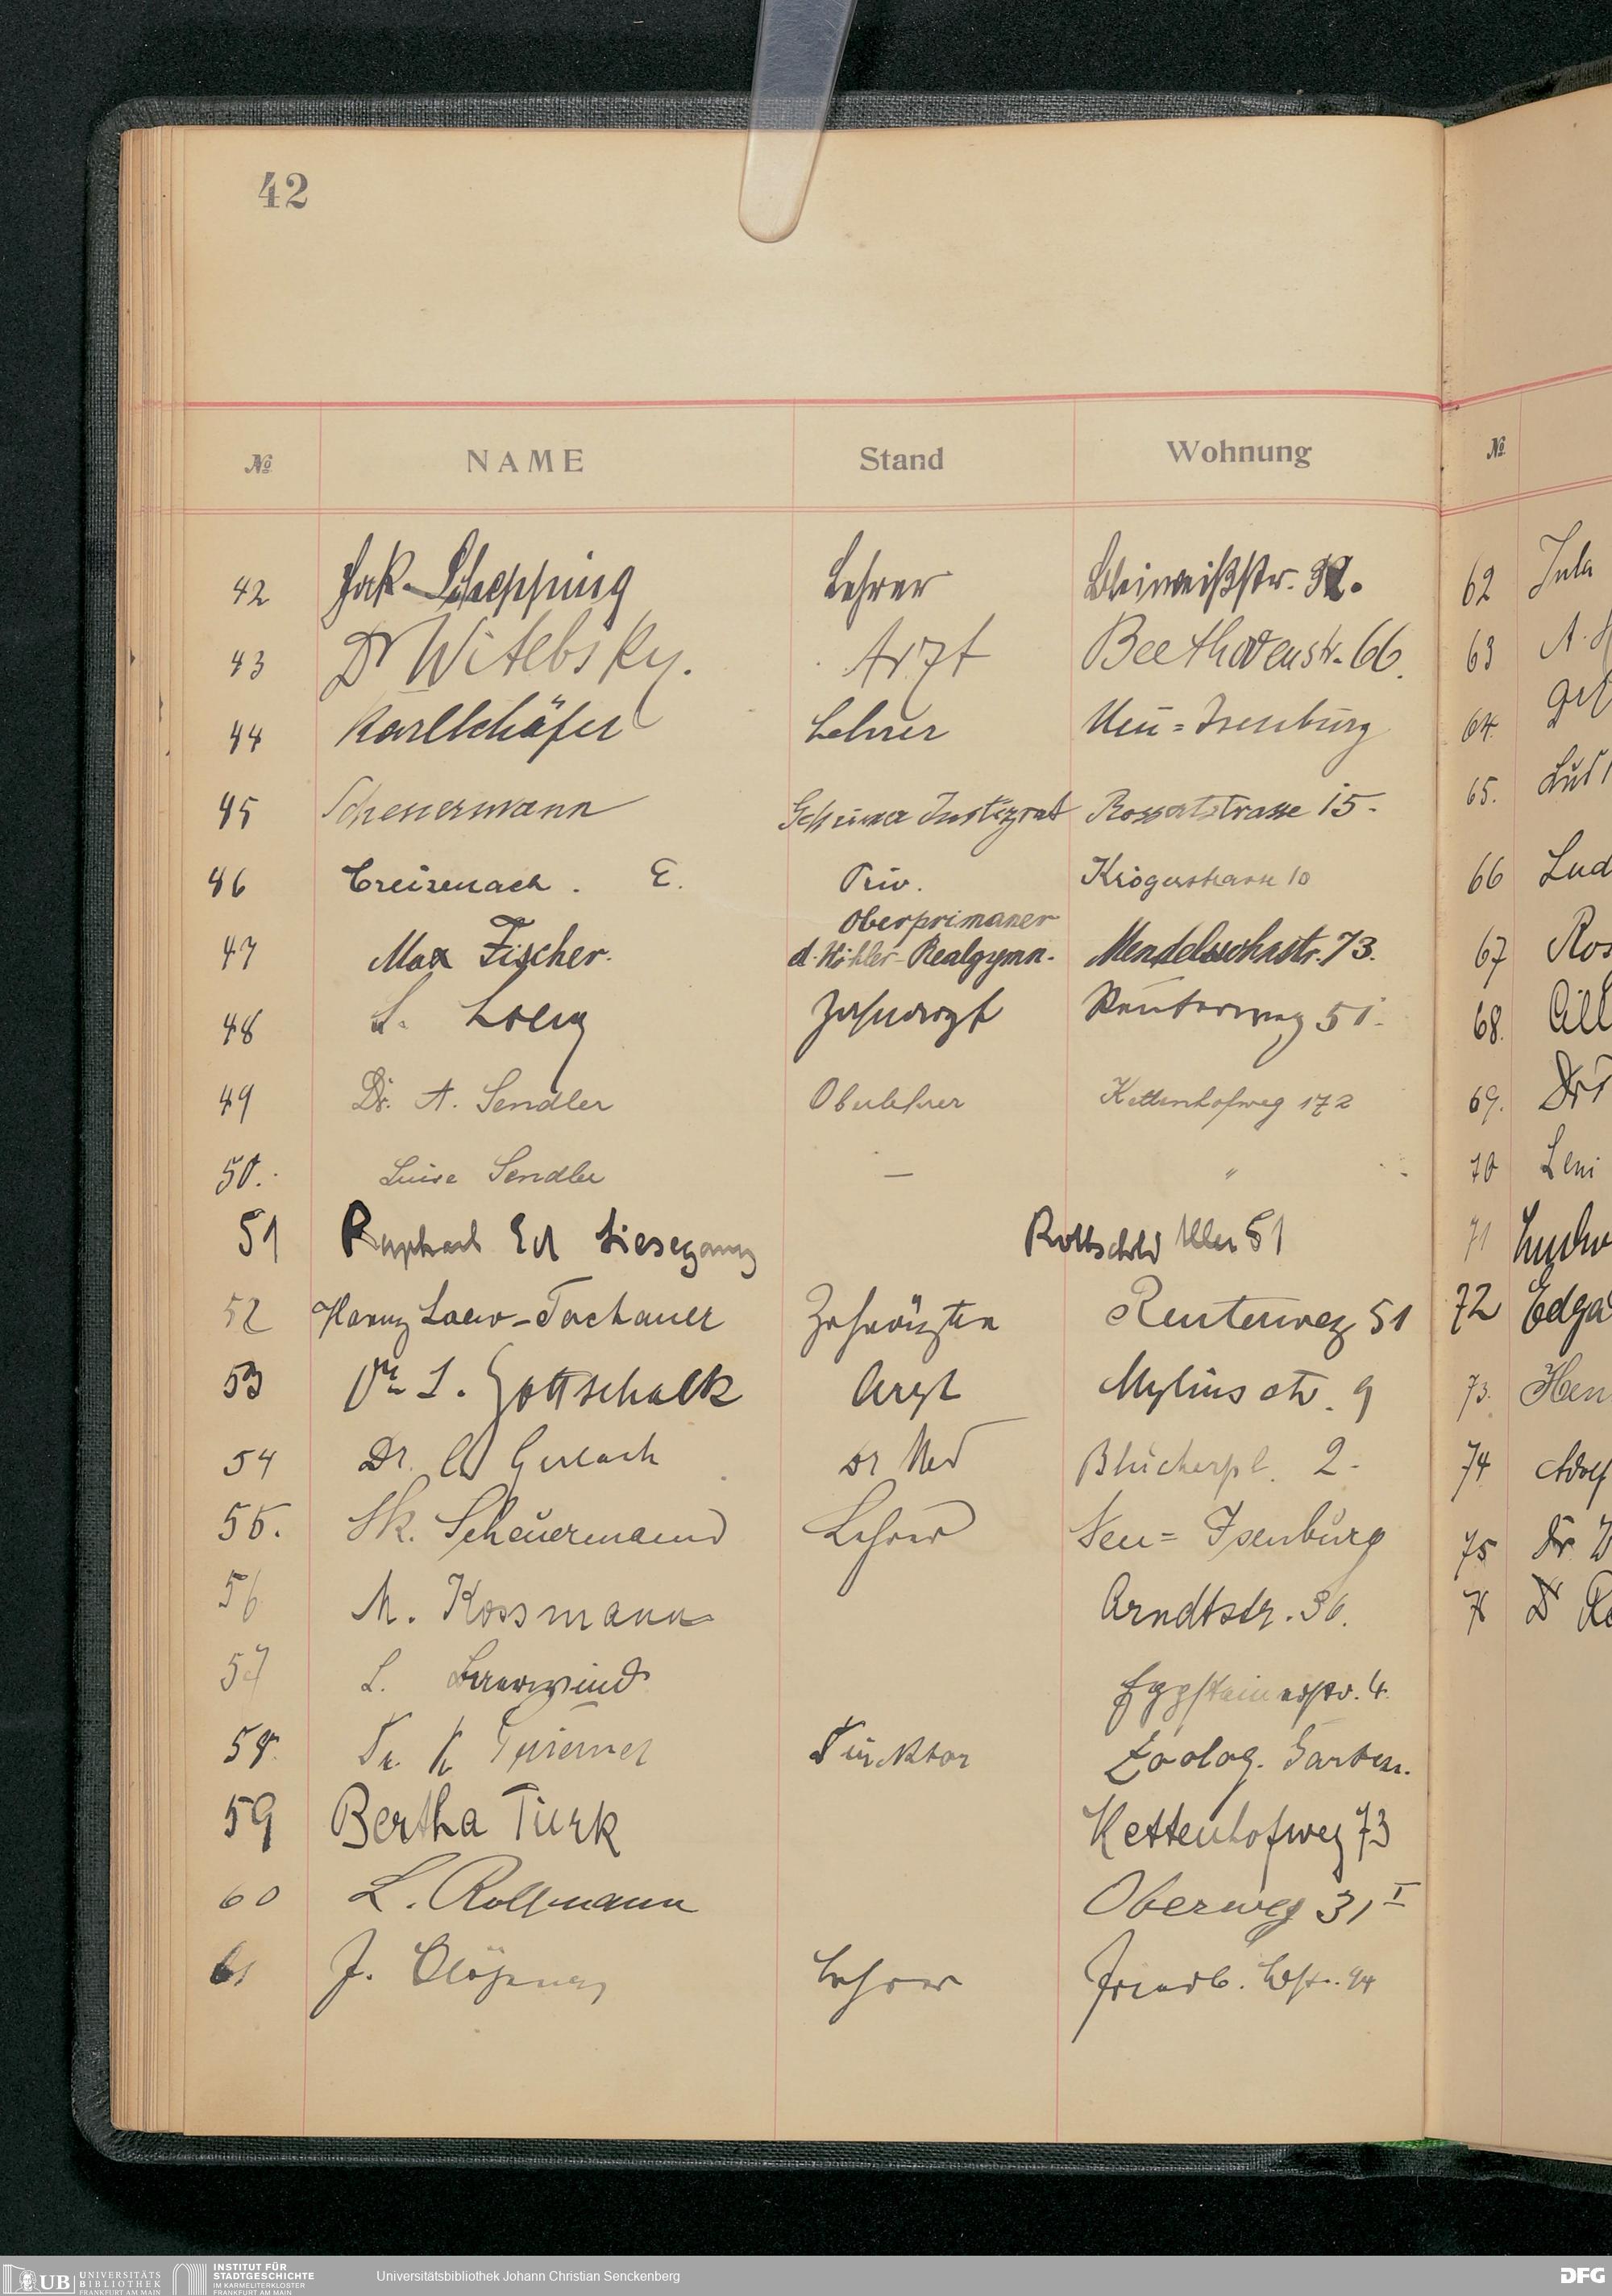 42
№ NAME Stand Wohnung
№
42 Jak. Schepping Lehrer Bleiweißstr. 32.
43 Dr Witebsky. Arzt Beethovenstr. 66.
44 Karl Schäfer Lehrer Neu=Isenburg
45 Scheuermann Geheimer Justizrat 15.
46 Creizenach. E. Priv. Krögerstrasse 10
Oberprimaner
47 Max Fischer. d. Wöhler-Realgymn. Mendelssohnstr. 73.
48 Zahnarzt Reuterweg 51.
49 Dr. A. Sendler Oberlehrer Kettenhofweg 172
50. Luise Sendler — "
51 Raphael Ed Liesegang Rothschild Allee 51
52 Loew-Tachauer Zahnärztin Reuterweg 51
53 Dr. L. Gottschalk Arzt Myliusstr. 9
54 Dr. W Gerlach Dr Med Blücherpl. 2.
55. Scheuermann Lehrer Neu=Isenburg
56 M. Kossmann Arndtstr. 36.
57 L. Eppsteinerstr. 4.
58. Dr. K Priemel Direktor Zoolog. Garten.
59 Bertha Türk Kettenhofweg 73
60 L. Rollmann Oberweg 31 I
61 J. Lehrer Friedb. Ldstr. 94
62
63 A.
64.
65.
66 Lud
67 Ros
68.
69. Dr
70 Leni
71
72 Edga
73. Hen
74 Adolf
75 Dr.
76 Dr
UB UNIVERSITÄTS
BIBLIOTHEK
FRANKFURT AM MAIN
INSTITUT FÜR
STADTGESCHICHTE
IM KARMELITERKLOSTER
FRANKFURT AM MAIN
Universitätsbibliothek Johann Christian Senckenberg
DFG